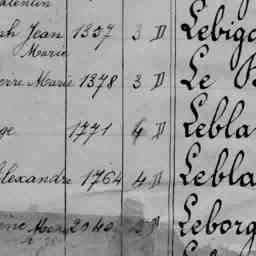 alentin
ph Jean 1357 3 D Lebigo
Marie
erre Marie 1378 3 D Le
ge 1771 4 D Lebla
lexandre 1764 4 D Lebla
2040 D Leborg